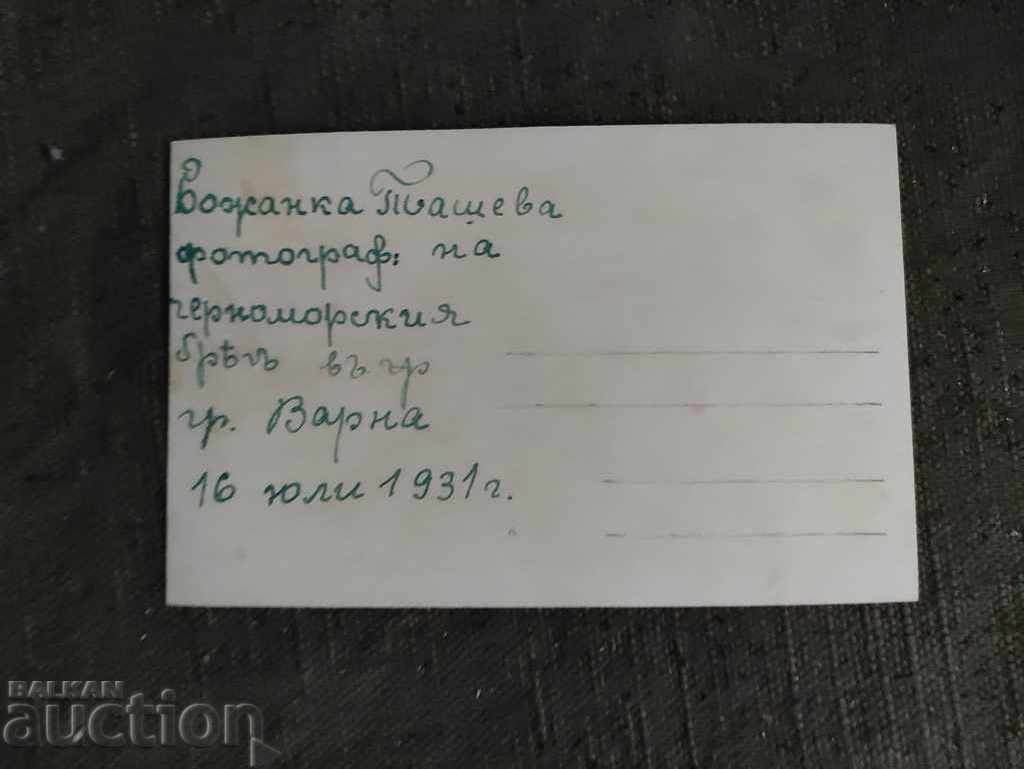 Божанка Ташева
фотограф. на
черноморския
брѣгъ въ гр
гр. Варна
16 юли 1931 г.
BALKAN
auction